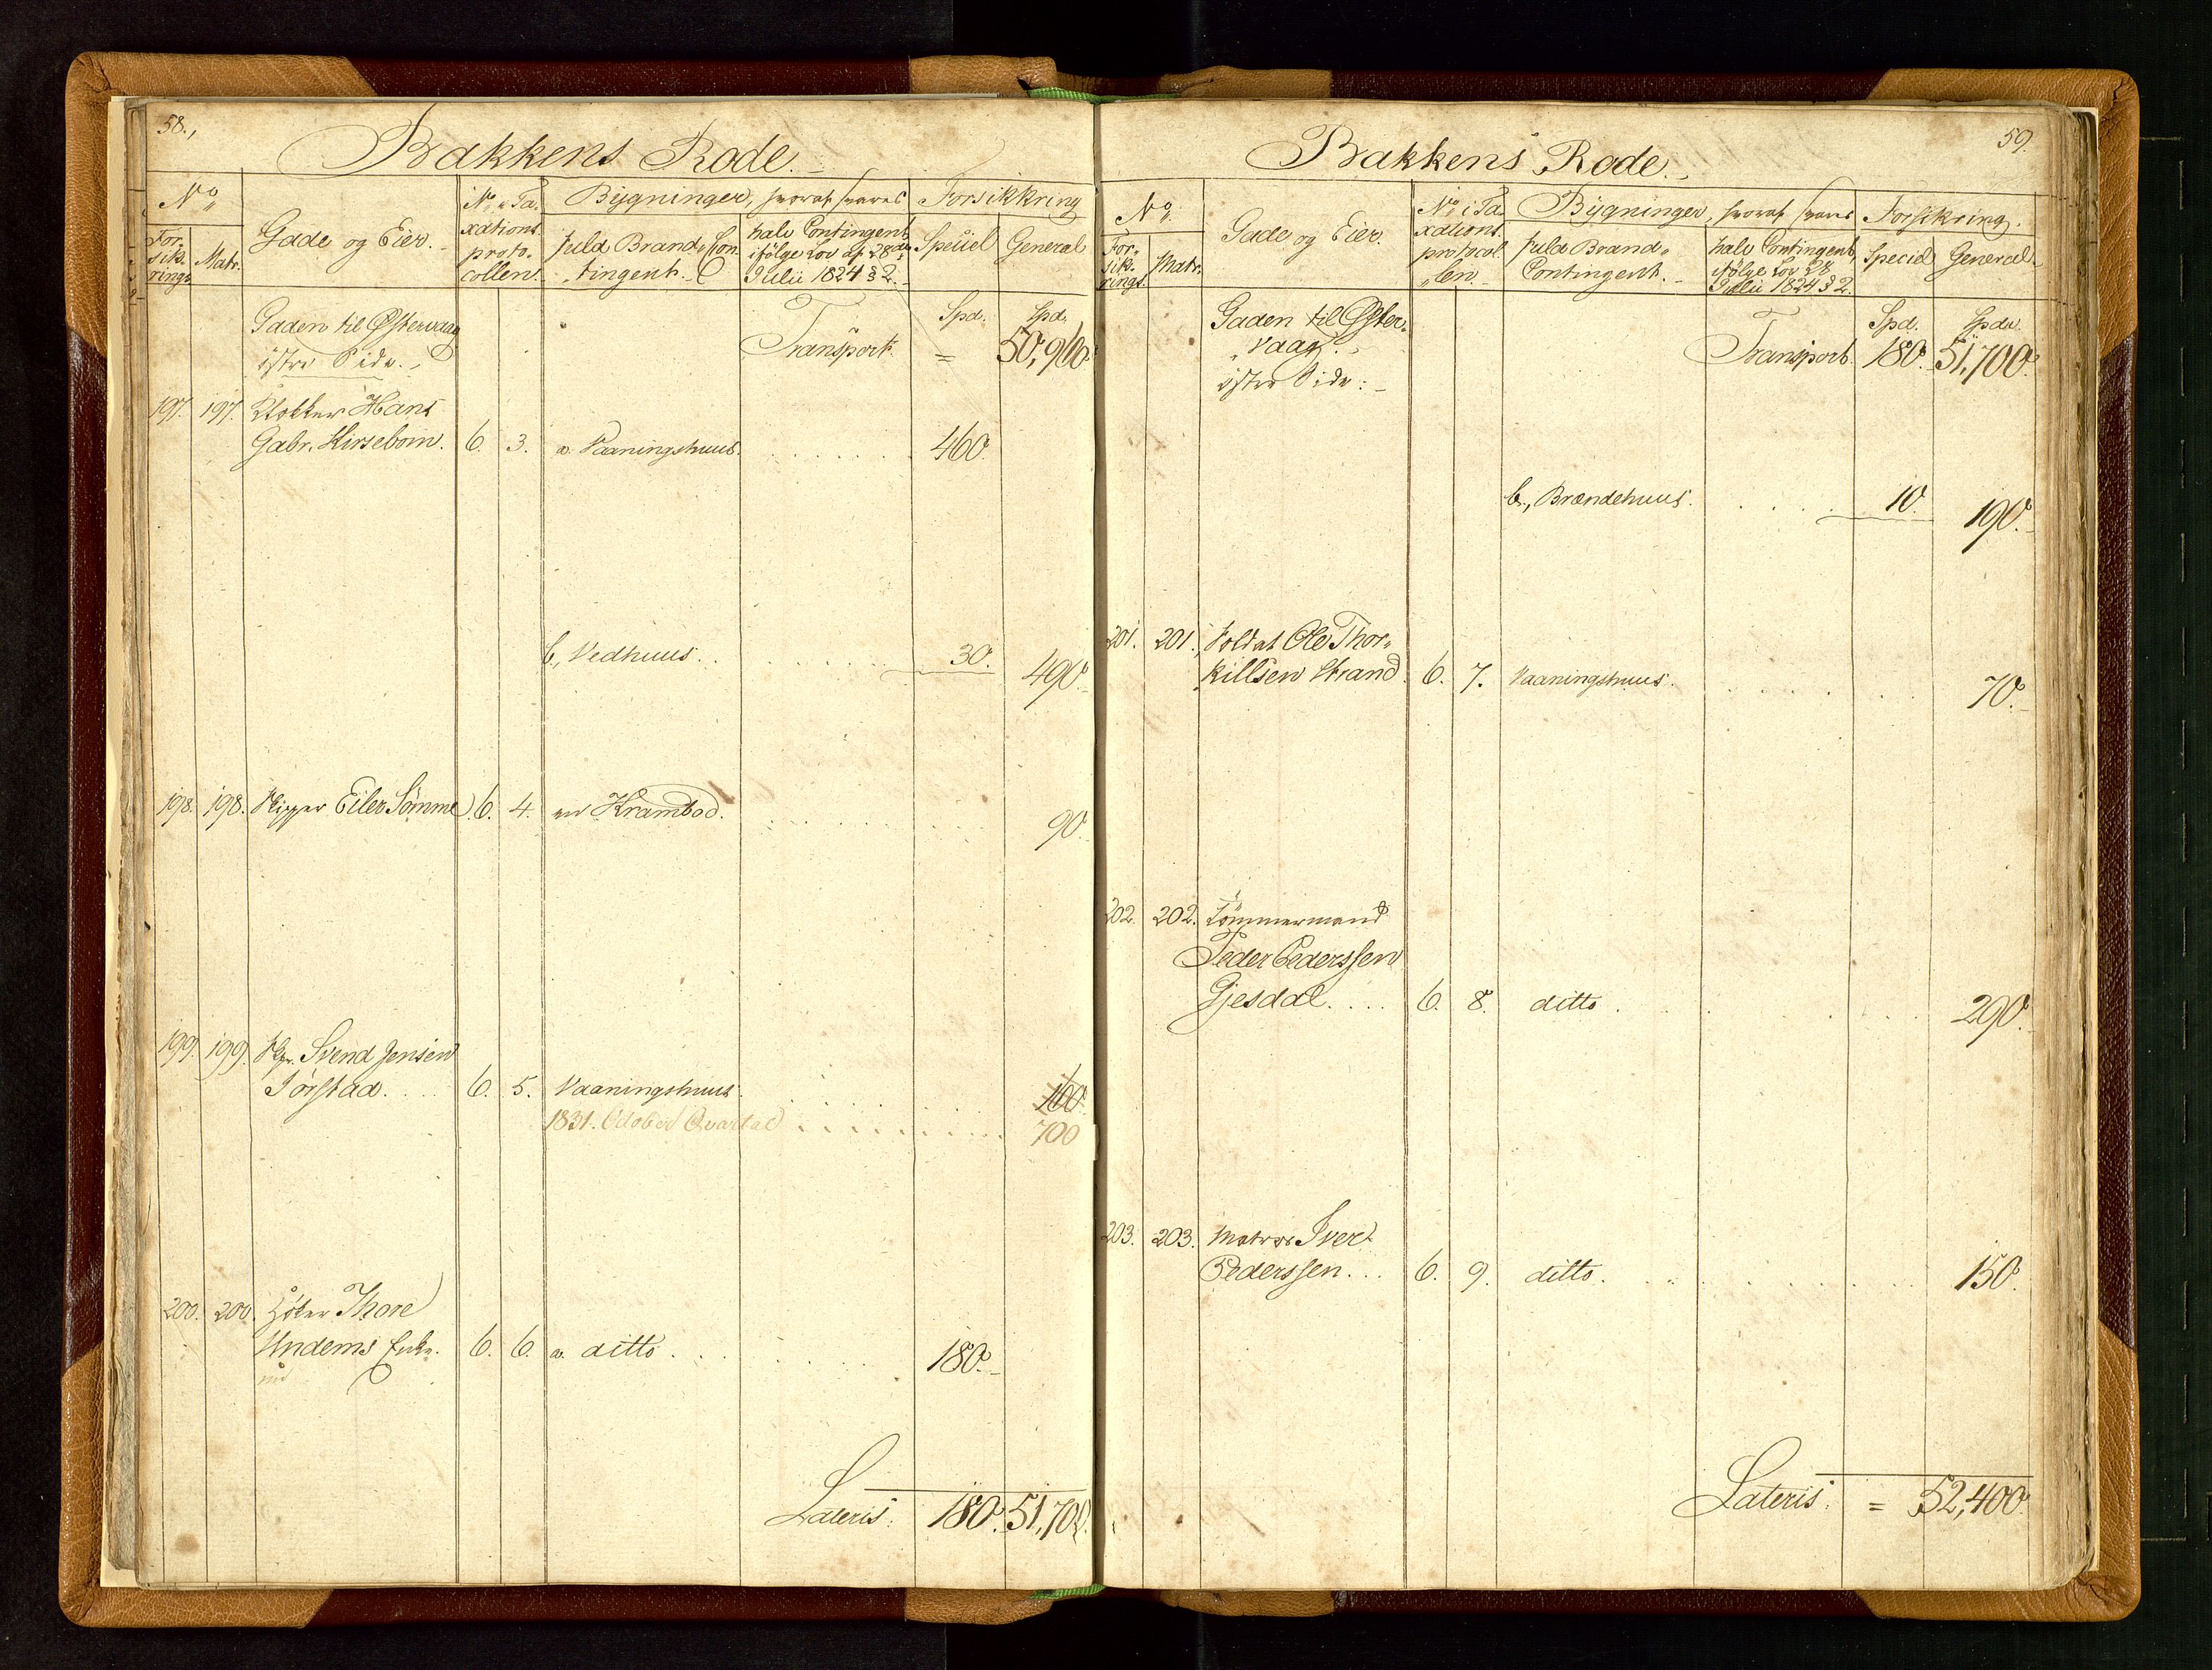 58.,
Bakkens Rode.
No.
For-
sik-
rings
Matr.
Gade og Eier.
No. i Ta-
xations
proto-
collen.
Bygninger, hvoraf svares
fuld Brand-Con-
tingent.
halv Contingent
ifölge Lov af 28de
Julii 1824 § 2.
Forsikkring
Speciel
General
Gaden til Østervaag
östre Side.
Transport.
Spd.
=
Spd.
50,960.
197. 197. Klokker Hans
Gabr. Kirsebom. 6. 3. a. Vaaningshuus. 460.
b, Vedhuus. 30. 490.
198. 198. Skipper Eiler Sömme. 6. 4. en Krambod. 90.
199. 199. Skpr. Svend Jensen
Törstad. 6. 5. Vaaningshuus. 160.
1831. October Qvartal 700
200. 200. Höker Thore
Undems Enke. 6. 6. a. ditto. 180.
Lateris. 180. 51,700.
59.
Bakkens Rode.
No.
For-
sik-
rings.
Matr.
Gade og Eier.
No. i Ta-
xations
protocol-
len.
Bygninger, hvoraf svares
fuld Brand-
Contingent.
halv Contingent,
ifölge Lov 28
Julii 1824 § 2.
Forsikring.
Speciel
General
Gaden til Øster-
vaag.
östre Side.
Transport.
Spd.
180.
Spd.
51,700.
b., Brændehuus. 10. 190.
201. 201. Soldat Ole Thor-
killsen Strand. 6. 7. Vaaningshuus. 70.
202. 202. Tömmermand
Peder Pederssen
Gjesdal. 6. 8. ditto. 290.
203. 203. Matros Ivert
Pederssen. 6. 9. ditto. 150.
Lateris. = 52,400.